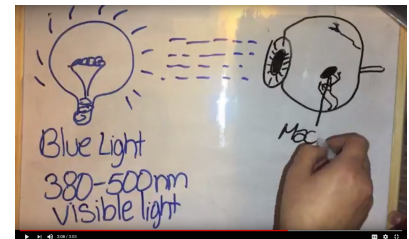 Blue Light
380-500nm
visible light
Mac
2:08 / 3:03